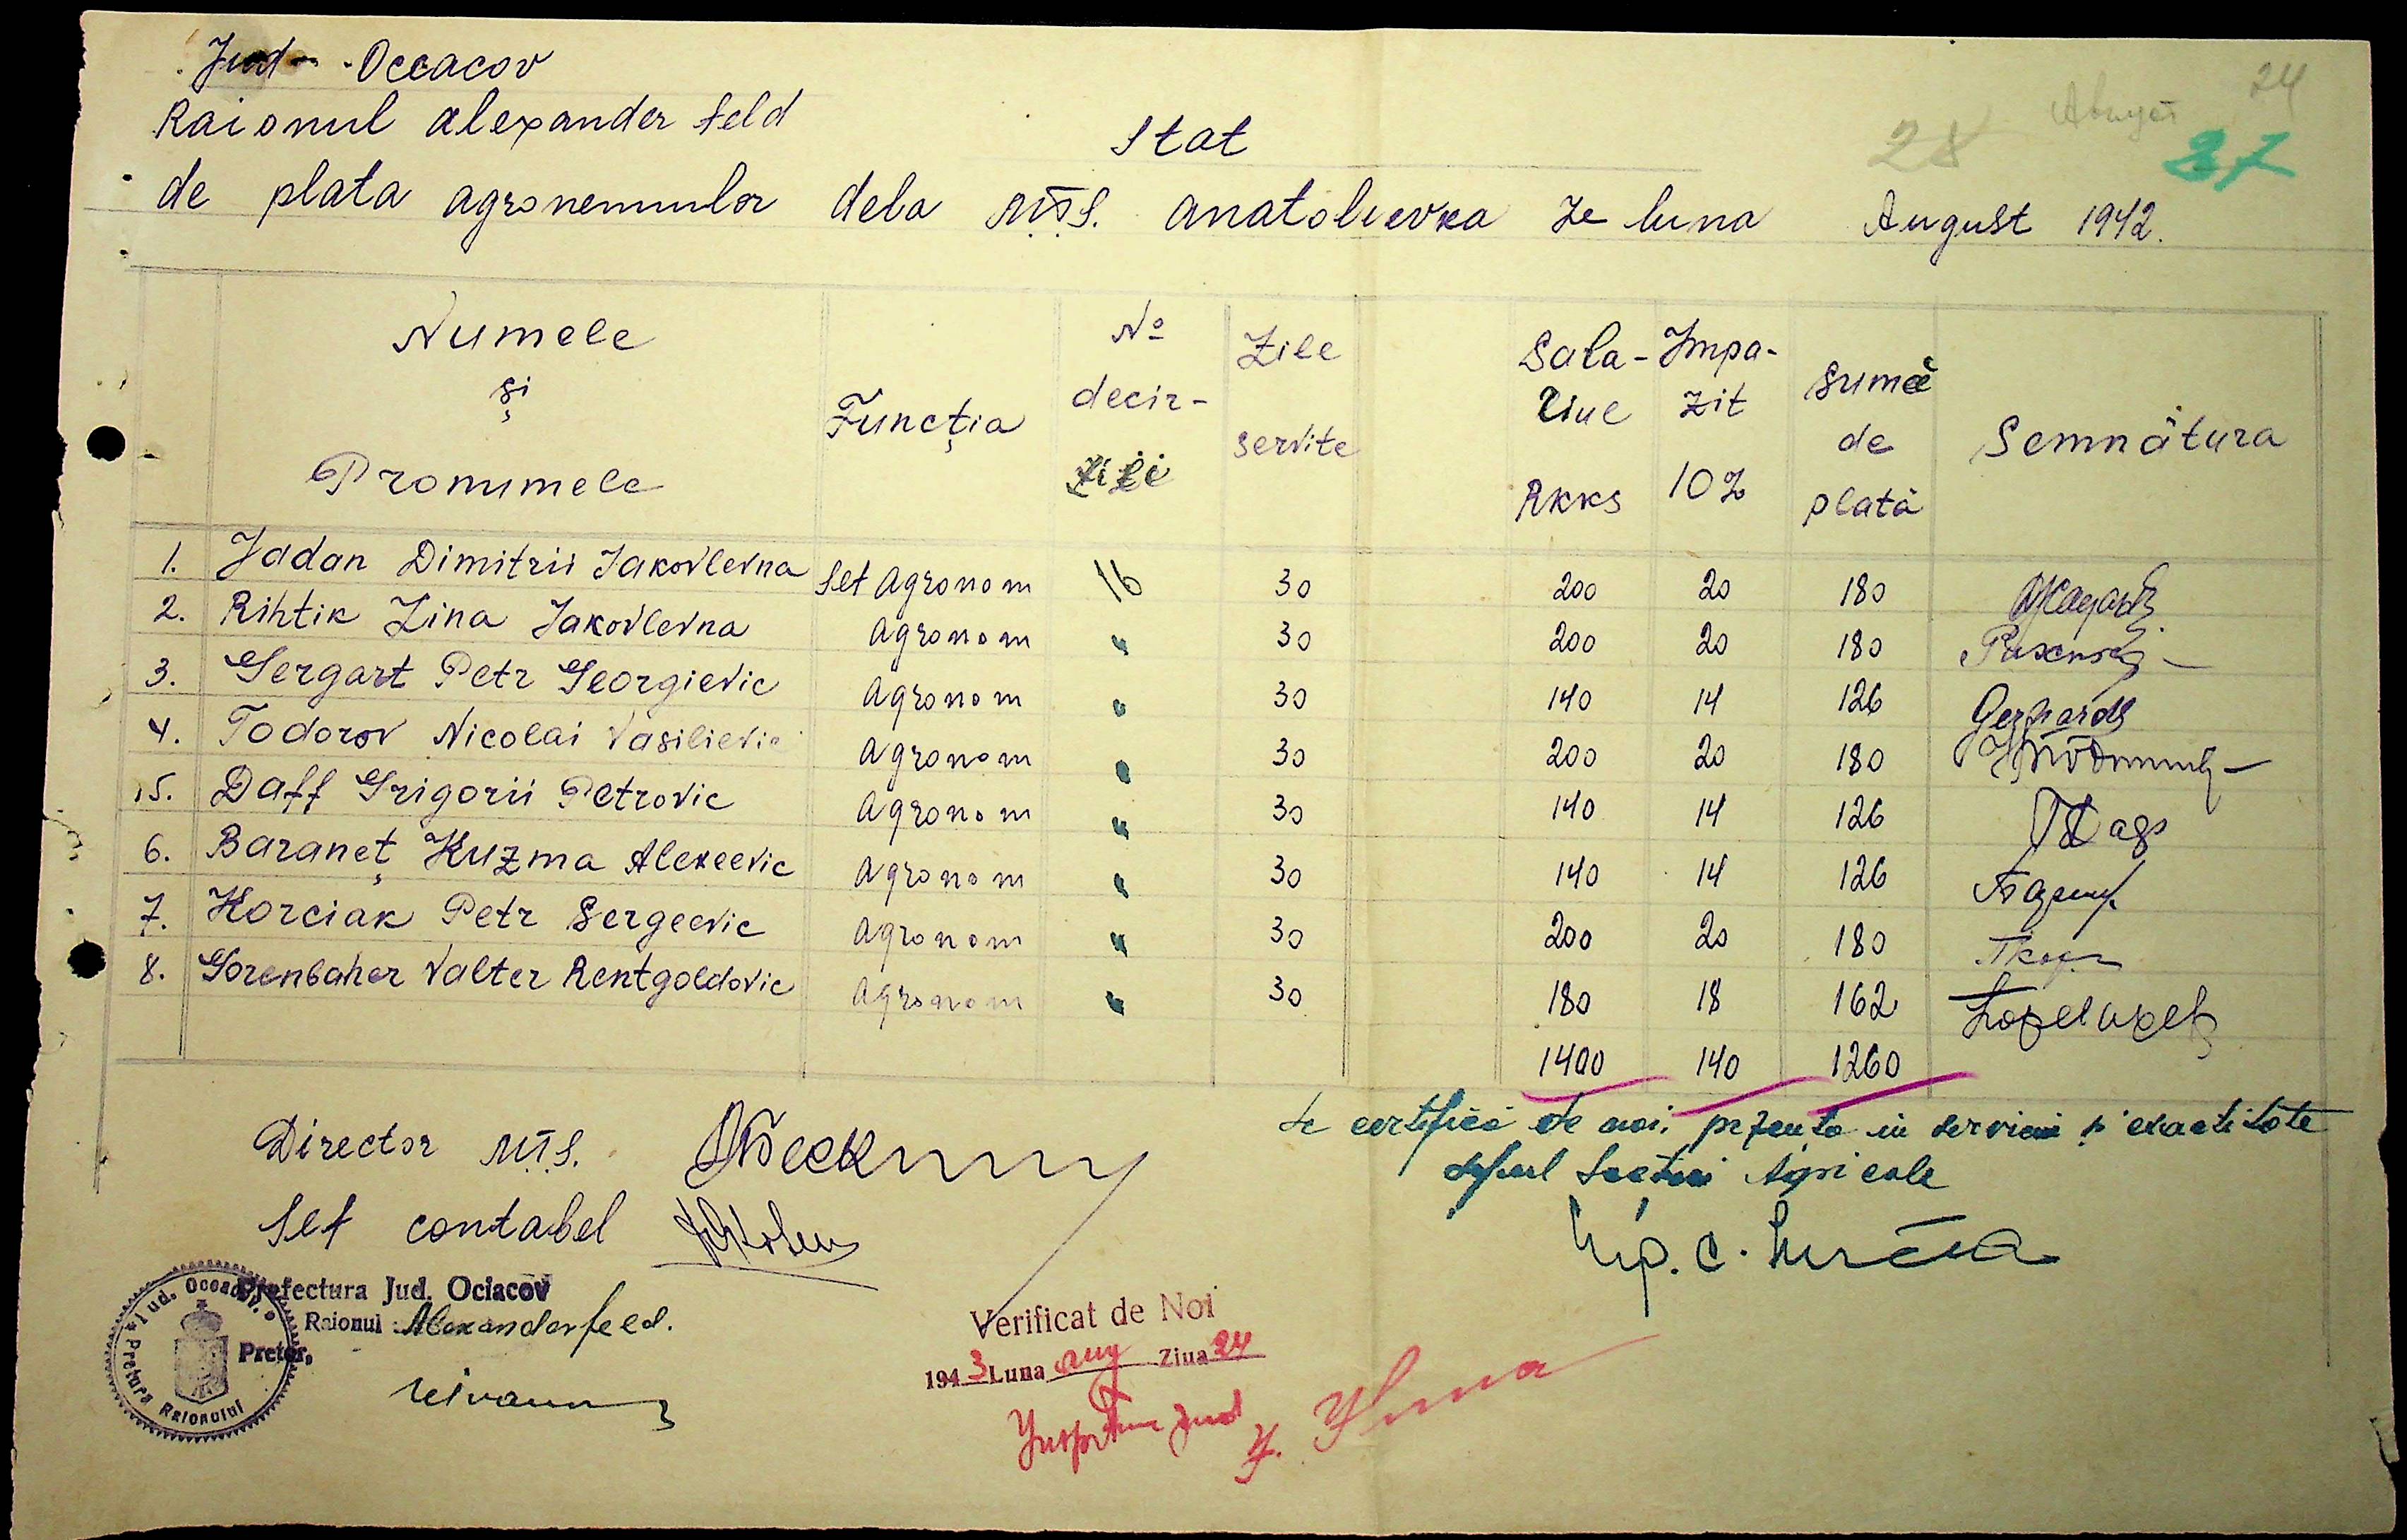 Jud. Occacov
Raionul Alexanderfeld
24
August
28
37
Stat
de plata agronemmulor dela M.T.S. Anatolievka Ze luna August 1942.
Numele și Pronumele
Funcția
No decir-zili
Zile servite
Sala-riul RKKS
Impa-zit 10%
Sumă de plată
Semnătura
1. Jadan Dimitrii Iakovlevna Sef Agronom 16 30 200 20 180
2. Rihtik Zina Jakovlevna Agronom " 30 200 20 180
3. Gergart Petr Georgievic Agronom " 30 140 14 126 Gerhardt
4. Todorov Nicolai Vasilievic Agronom " 30 200 20 180
5. Daff Grigorii Petrovic Agronom " 30 140 14 126
6. Baraneț Kuzma Alexeevic Agronom " 30 140 14 126
7. Korciak Petr Sergeevic Agronom " 30 200 20 180
8. Gorenbaher Valter Rentgoldovic Agronom " 30 180 18 162
1400 140 1260
Se certifică de noi, prezenta in serviciu și exactitate
Șeful Secției Agricole
Director M.T.S.
Sef contabel
Prefectura Jud. Ociacov
Raionul Alexanderfeld.
Pretor,
Jud. Oceacov
Pretura Raionului
Verificat de Noi
1943 Luna aug Ziua 24